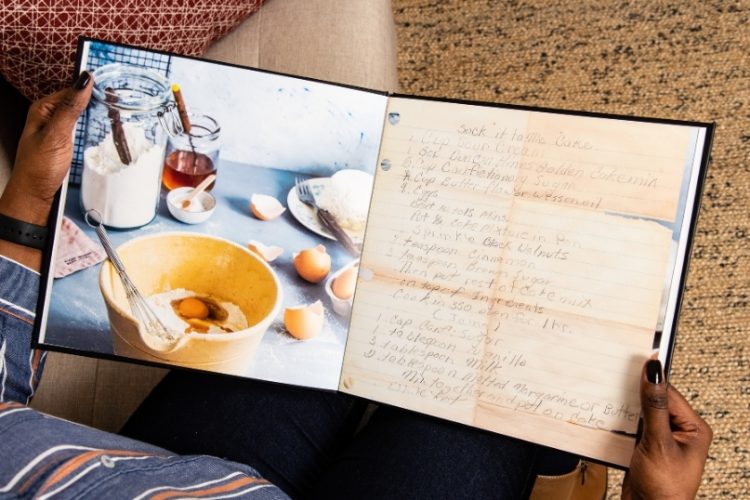 Sock it to Me Cake
1 Cup Sour Cream
1 Box Duncan Hines Golden Cake mix
Cup Sugar
Cup Butter Flavor wesson oil
Beat
Put ½ Cake mixture in Pan
Sprinkle Black Walnuts
teaspoon Cinnamon
teaspoons Brown Sugar
Then put rest of Cake mix
on top of Ingredients
Cook in 350 oven for 1 hr.
1 Cup Sugar
1 tablespoon Vanilla
3 tablespoon Milk
tablespoon Melted Margarine or Butter
Mix together and put on Cake